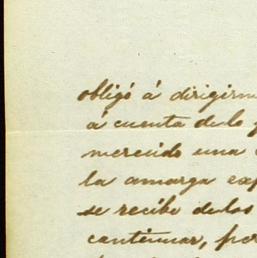 obligó á dirigirm
á cuenta de lo
merecido una
la amarga exp
se recibe de los
continuar, per